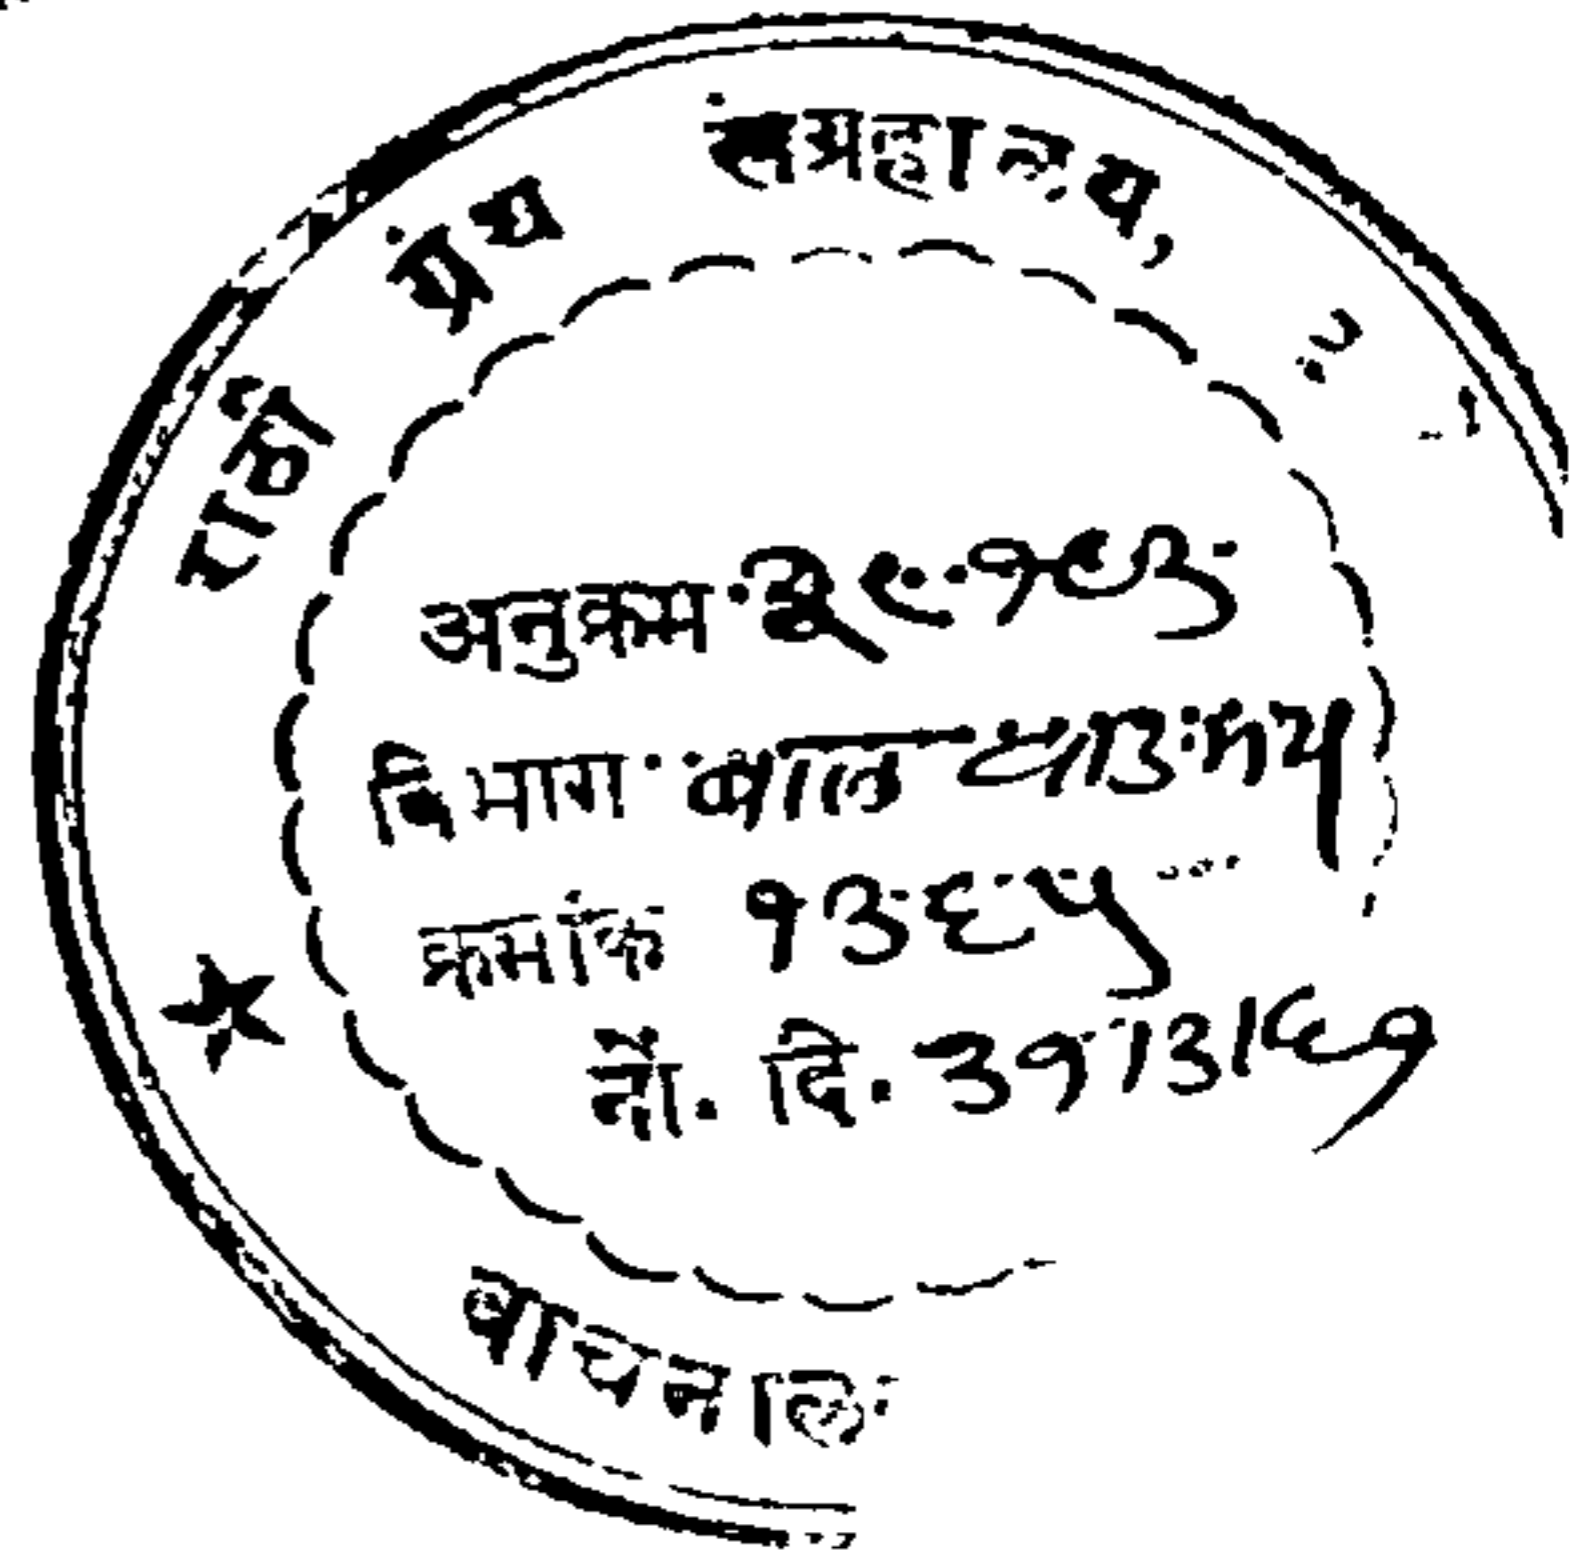 राठी ग्रंथ संग्रहालय,
अनुक्रम
विभाग बाल वाङमय
क्रमांक १३६५
नों. दि. ३१/३/६१
वाचनाल